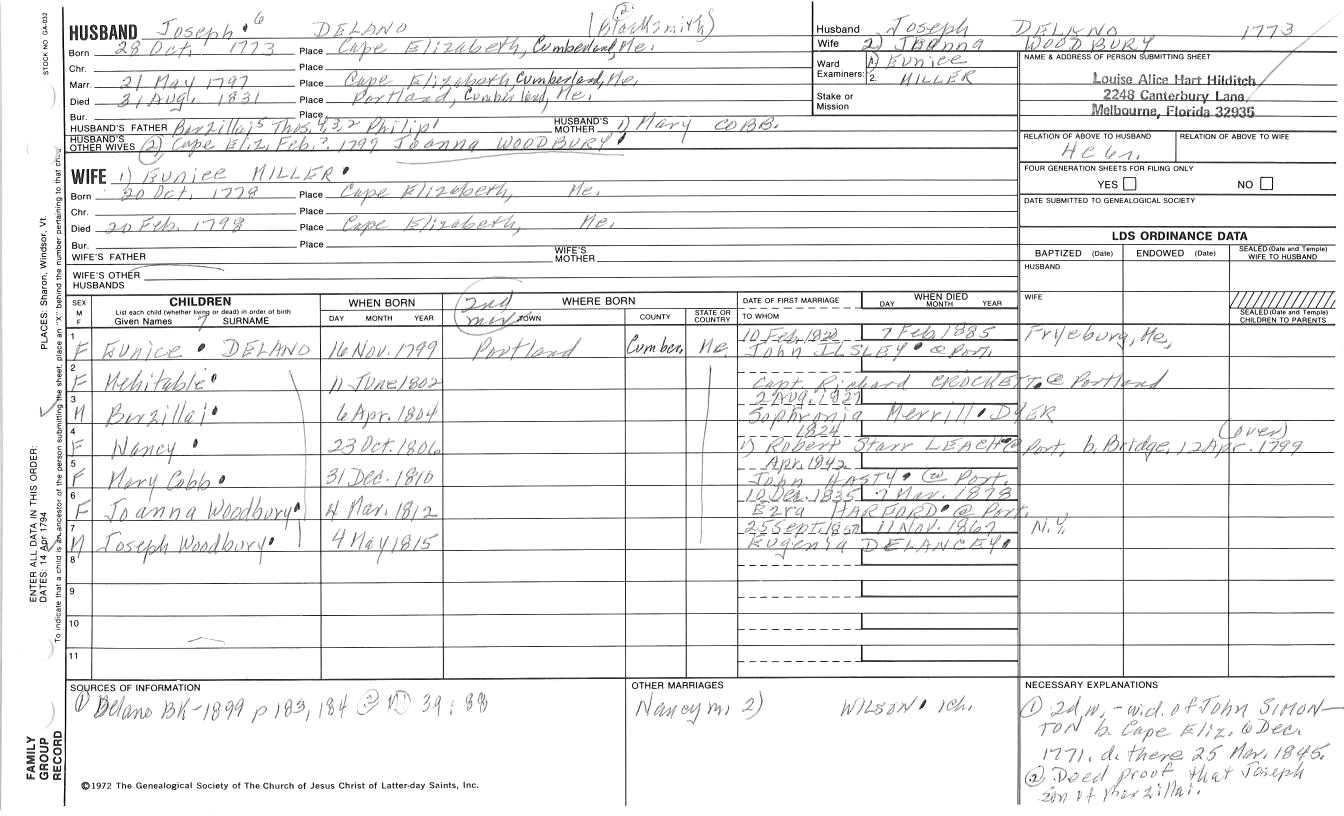 STOCK NO. GA-032
HUSBAND Joseph 6 DELANO (Blacksmith) 2
Born 28 Oct. 1773 Place Cape Elizabeth, Cumberland, Me.
Chr. Place
Marr. 21 May 1797 Place Cape Elizabeth, Cumberland, Me.
Died 31 Aug. 1831 Place Portland, Cumberland, Me.
Bur. Place
HUSBAND'S FATHER Barzillai 5 Thos. 4, 3, 2 Philip 1 HUSBAND'S MOTHER 1) Mary COBB.
HUSBAND'S OTHER WIVES (2) Cape Eliz. Feb. ?, 1799 Joanna WOODBURY
WIFE 1) Eunice MILLER
Born 20 Oct. 1778 Place Cape Elizabeth, Me.
Chr. Place
Died 20 Feb. 1798 Place Cape Elizabeth, Me.
Bur. Place
WIFE'S FATHER WIFE'S MOTHER
WIFE'S OTHER HUSBANDS
Husband Joseph DELANO 1773
Wife 2) JOANNA WOODBURY
Ward Examiners: 1. Eunice
2. MILLER
Stake or Mission
NAME & ADDRESS OF PERSON SUBMITTING SHEET
Louise Alice Hart Hilditch
2248 Canterbury Lane
Melbourne, Florida 32935
RELATION OF ABOVE TO HUSBAND RELATION OF ABOVE TO WIFE
FOUR GENERATION SHEETS FOR FILING ONLY
YES NO
DATE SUBMITTED TO GENEALOGICAL SOCIETY
LDS ORDINANCE DATA
BAPTIZED (Date) ENDOWED (Date) SEALED (Date and Temple) WIFE TO HUSBAND
HUSBAND
WIFE
SEALED (Date and Temple) CHILDREN TO PARENTS
SEX M F CHILDREN WHEN BORN 2nd mar WHERE BORN DATE OF FIRST MARRIAGE WHEN DIED
List each child (whether living or dead) in order of birth
Given Names 7 SURNAME DAY MONTH YEAR TOWN COUNTY STATE OR COUNTRY TO WHOM DAY MONTH YEAR
1 10 Feb. 1822 7 Feb. 1885 Fryeburg, Me,
F Eunice DELANO 16 Nov. 1799 Portland Cumber. Me. John ILSLEY @ Port.
2
F Mehitable 11 June 1802 Capt. Richard CROCKETT @ Portland
3 2 Aug. 1827
M Barzillai 6 Apr. 1804 Sophronia Merrill DYER
4 1824 (over)
F Nancy 23 Oct. 1806 1) Robert Starr LEACH @ Port, b. Bridge, 12 Apr. 1799
5 Apr. 1842
F Mary Cobb 31 Dec. 1810 John HASTY @ Port.
6 10 Dec. 1835 7 Mar. 1878
F Joanna Woodbury 4 Mar. 1812 Ezra HARFORD @ Port.
7 25 Sept. 11 Nov. 1867 N.Y.
M Joseph Woodbury 4 May 1815 Eugenia DELANCEY
8
9
10
11
SOURCES OF INFORMATION
① Delano BK-1899 p 183, 184 39:88
OTHER MARRIAGES
Nancy m. 2) WILSON ch.
NECESSARY EXPLANATIONS
① 2d w. - wid. of John SIMON-
TON b. Cape Eliz. 6 Dec.
1771, d. there 25 Mar. 1845.
② Deed proof that Joseph
son of Barzillai.
©1972 The Genealogical Society of The Church of Jesus Christ of Latter-day Saints, Inc.
FAMILY GROUP RECORD
ENTER ALL DATA IN THIS ORDER:
DATES: 14 Apr 1794
PLACES: Sharon, Windsor, Vt.
To indicate that a child is an ancestor of the person submitting the sheet, place an "X" behind the number pertaining to that child.